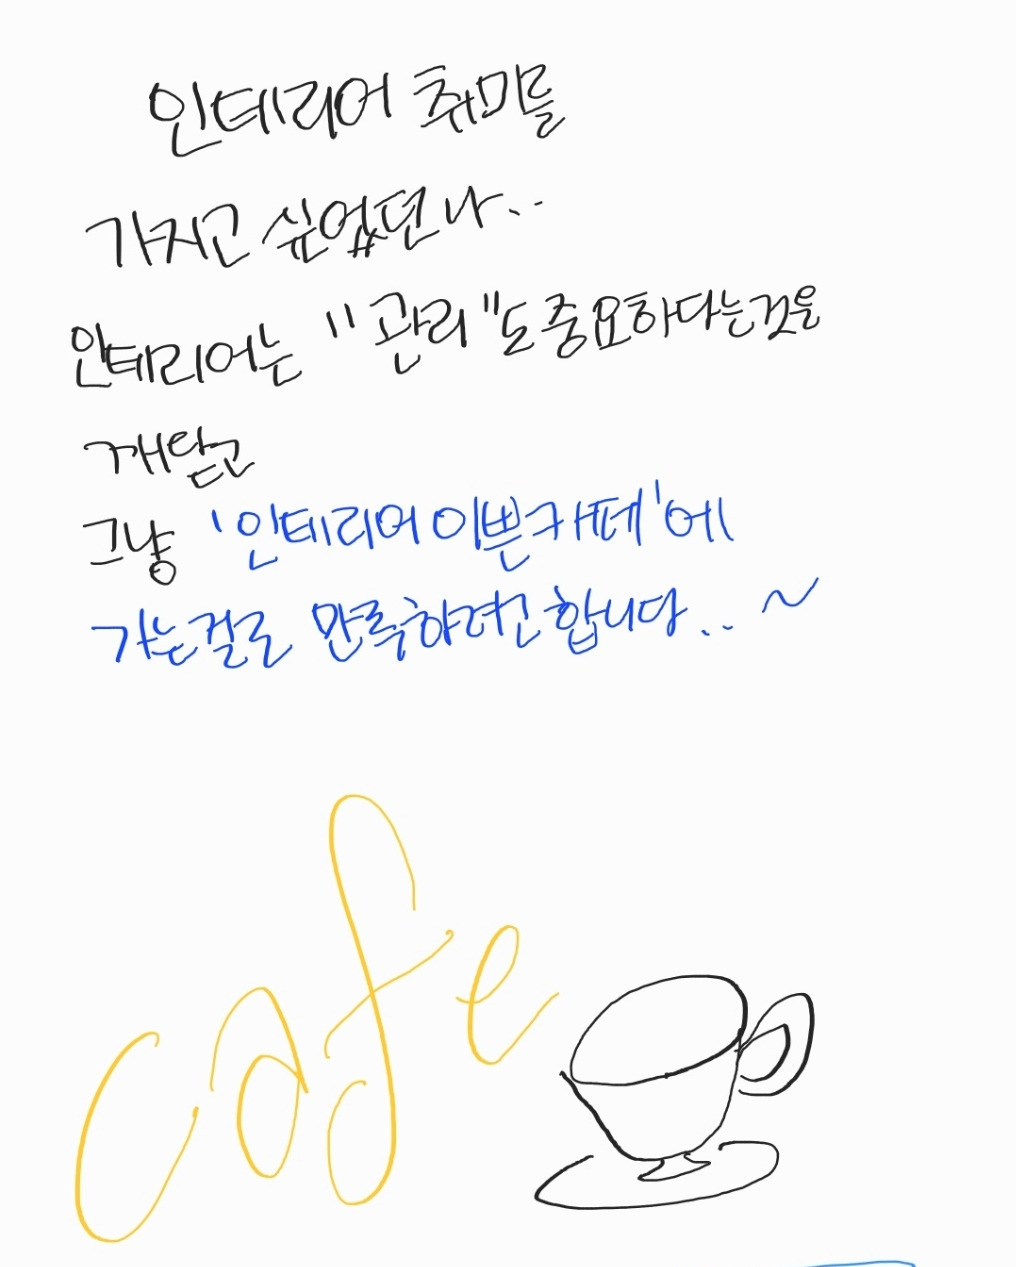 인테리어 취미를
가지고 싶었던 나..
인테리어는 "관리"도 중요하다는것을
깨닫고
그냥 '인테리어 이쁜카페'에
가는걸로 만족하려고 합니다..~
cafe